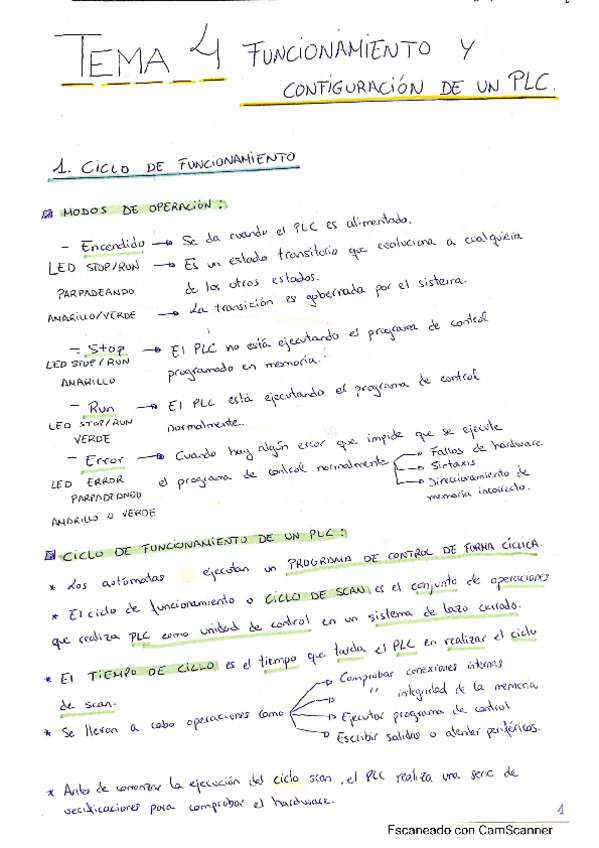 TEMA 4 FUNCIONAMIENTO Y
CONFIGURACIÓN DE UN PLC.
1. CICLO DE FUNCIONAMIENTO
MODOS DE OPERACIÓN:
- Encendido → Se da cuando el PLC es alimentado.
LED STOP/RUN → Es un estado transitorio que evoluciona a cualquiera
PARPADEANDO de los otros estados.
AMARILLO/VERDE → La transición es gobernada por el sistema.
- Stop → El PLC no está ejecutando el programa de control
LED STOP/RUN programado en memoria.
AMARILLO
- Run → El PLC está ejecutando el programa de control
LED STOP/RUN normalmente.
VERDE
- Error → Cuando hay algún error que impide que se ejecute
LED ERROR el programa de control normalmente → Fallos de hardware
PARPADEANDO → Sintaxis
AMARILLO O VERDE → Direccionamiento de
memoria incorrecto.
CICLO DE FUNCIONAMIENTO DE UN PLC:
* Los autómatas ejecutan un PROGRAMA DE CONTROL DE FORMA CÍCLICA.
* El ciclo de funcionamiento o CICLO DE SCAN es el conjunto de operaciones
que realiza PLC como unidad de control en un sistema de lazo cerrado.
* El TIEMPO DE CICLO es el tiempo que tarda el PLC en realizar el ciclo
de scan.
* Se llevan a cabo operaciones como → Comprobar conexiones internas
→ " integridad de la memoria
→ Ejecutar programa de control
→ Escribir salidas o atender periféricos.
* Antes de comenzar la ejecución del ciclo scan, el PLC realiza una serie de
verificaciones para comprobar el hardware.
1
Escaneado con CamScanner